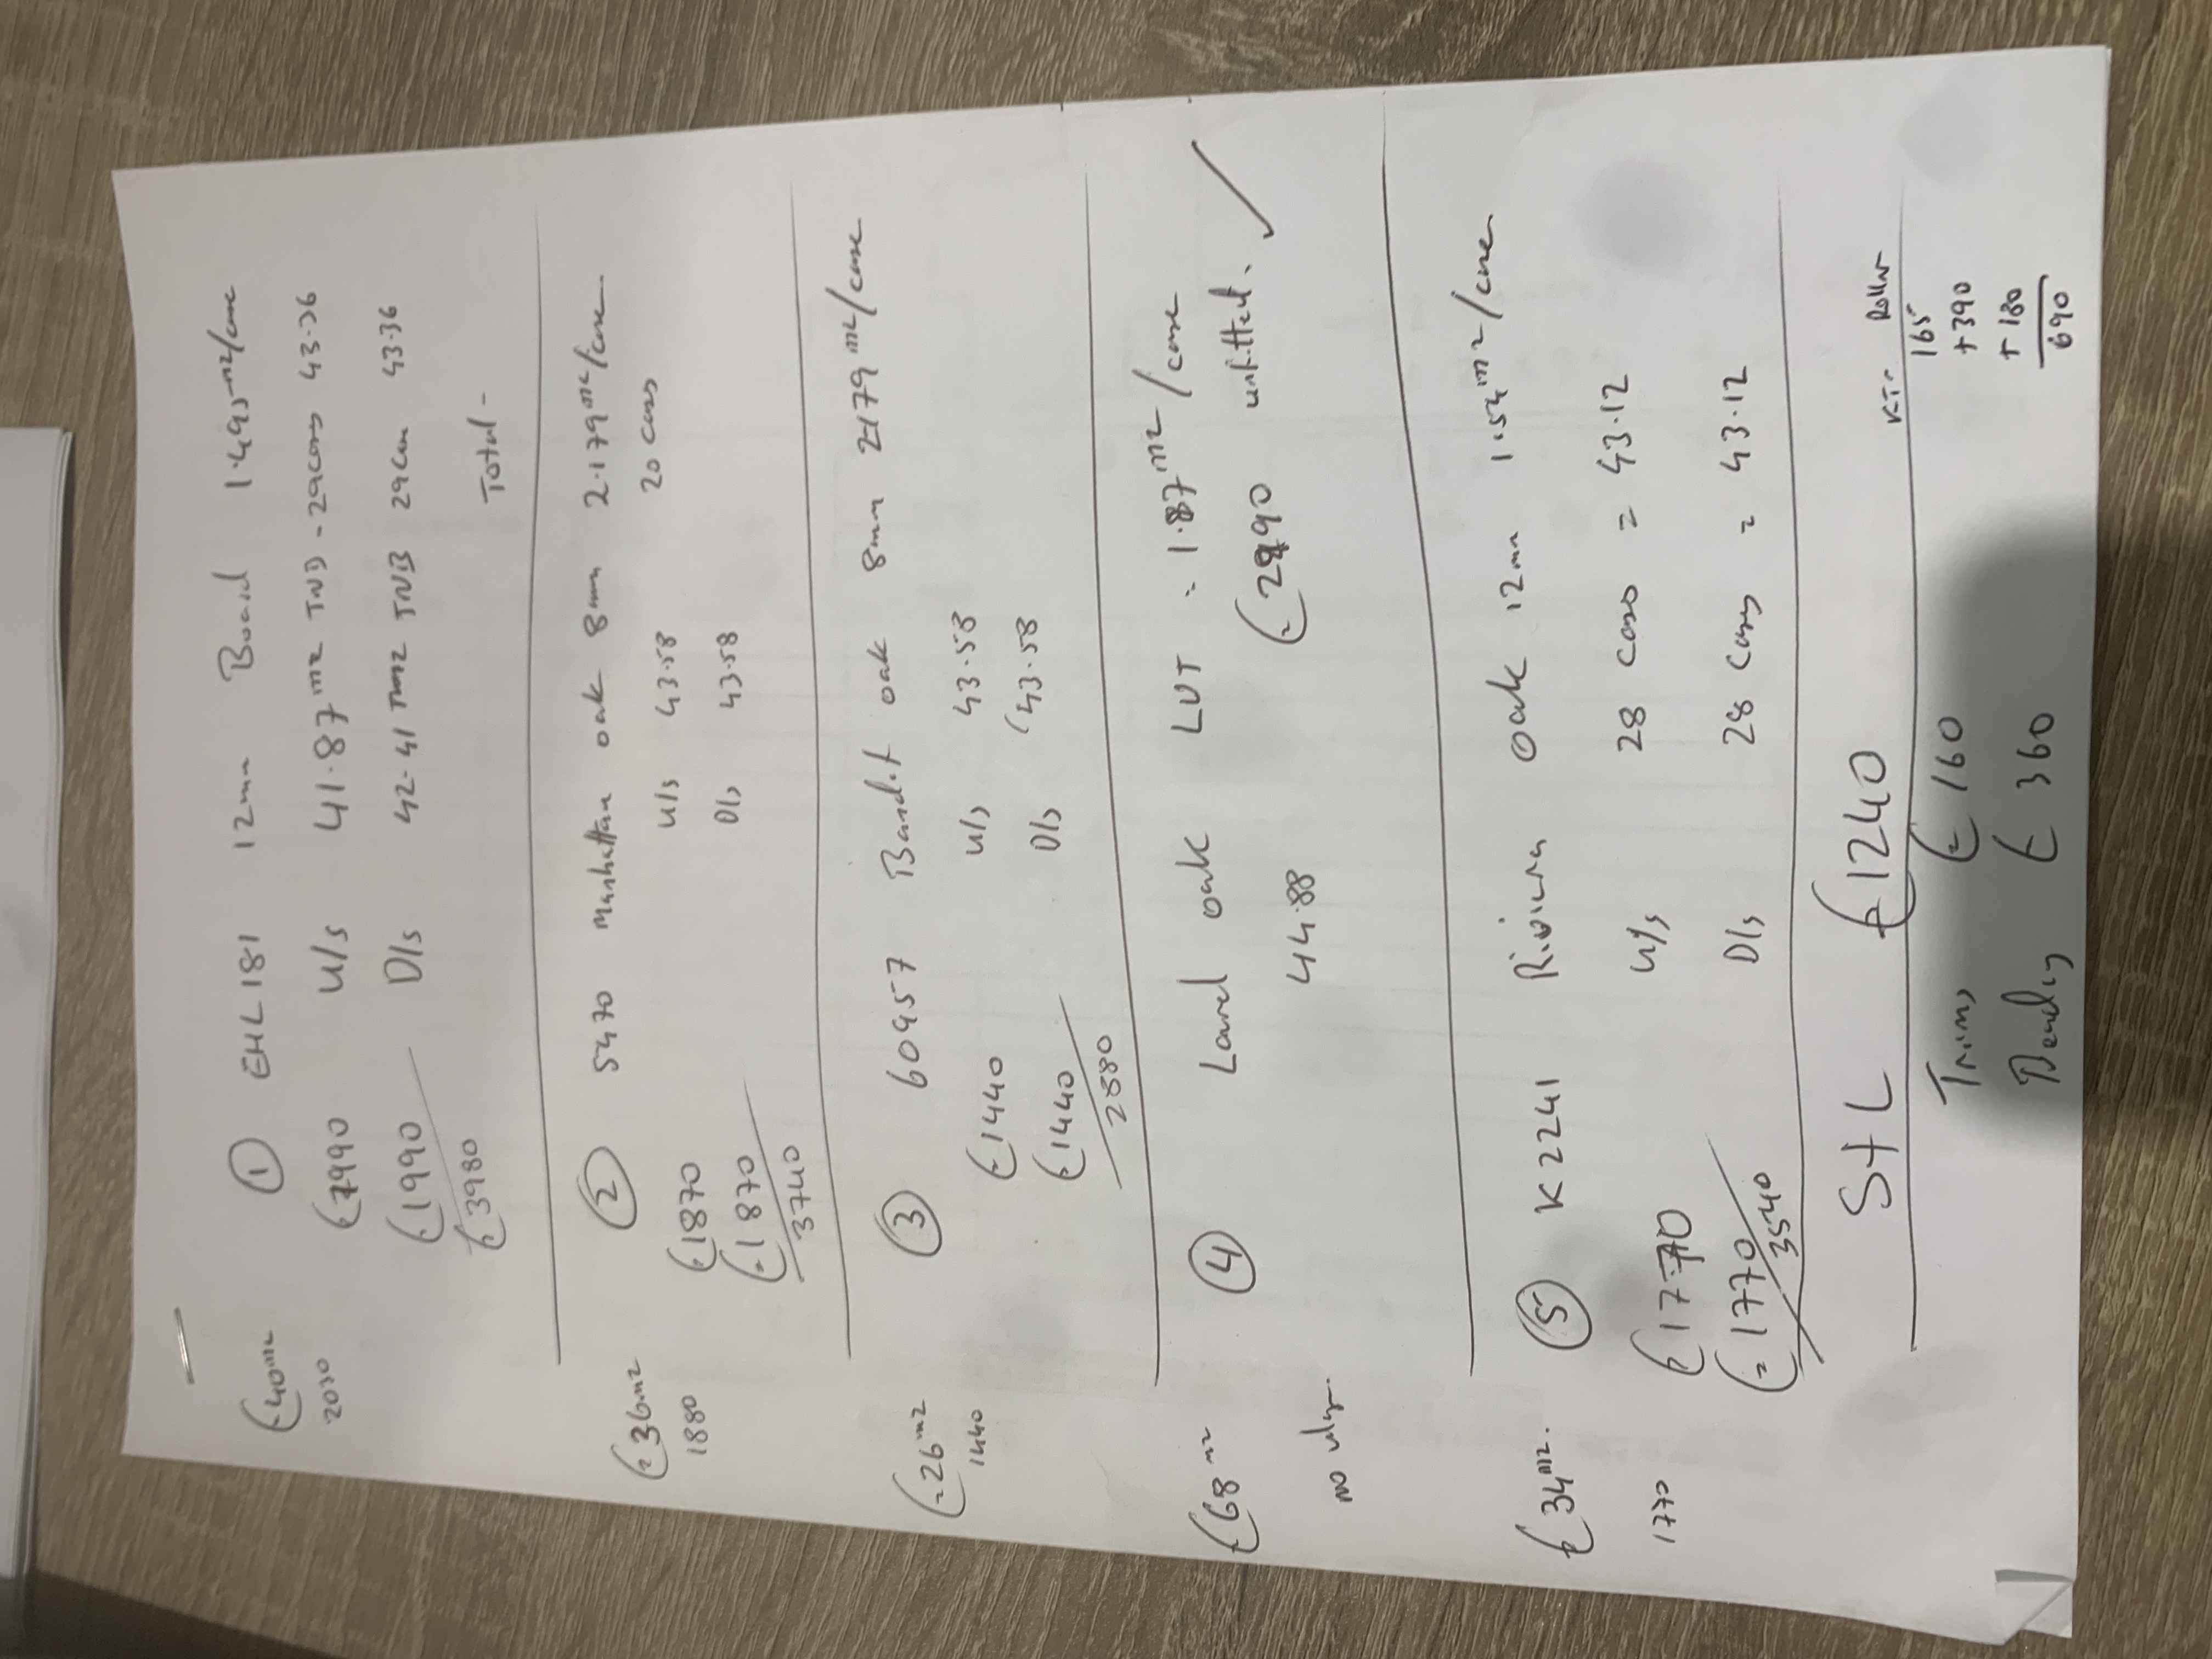 £40m2 ① EHL181 12mm Board 1.495m2/case
2030 £1990 U/S 41.87m2 TVB - 29cases 43.36
£1990 D/S 42.41 m2 TVB 29cases 43.36
£3980 Total -
£36m2 ② 5470 Manhattan oak 8mm 2.179m2/case
1880 £1870 U/S 43.58 20 cases
£1870 D/S 43.58
3740
£26m2 ③ 60957 Bandit oak 8mm 2.179m2/case
1440 £1440 U/S 43.58
£1440 D/S 43.58
2880
£68m2 ④ Laurel oak LVT = 1.87m2/case
no 44.88 £2990 unfitted. ✓
£34m2. ⑤ K2241 Riviera oak 12mm 1.54m2/case
1770 £1770 U/S 28 cases = 43.12
£1770 D/S 28 cases = 43.12
3540
S+L £1240
Trims £160
Beading £360
165
+390
+180
690